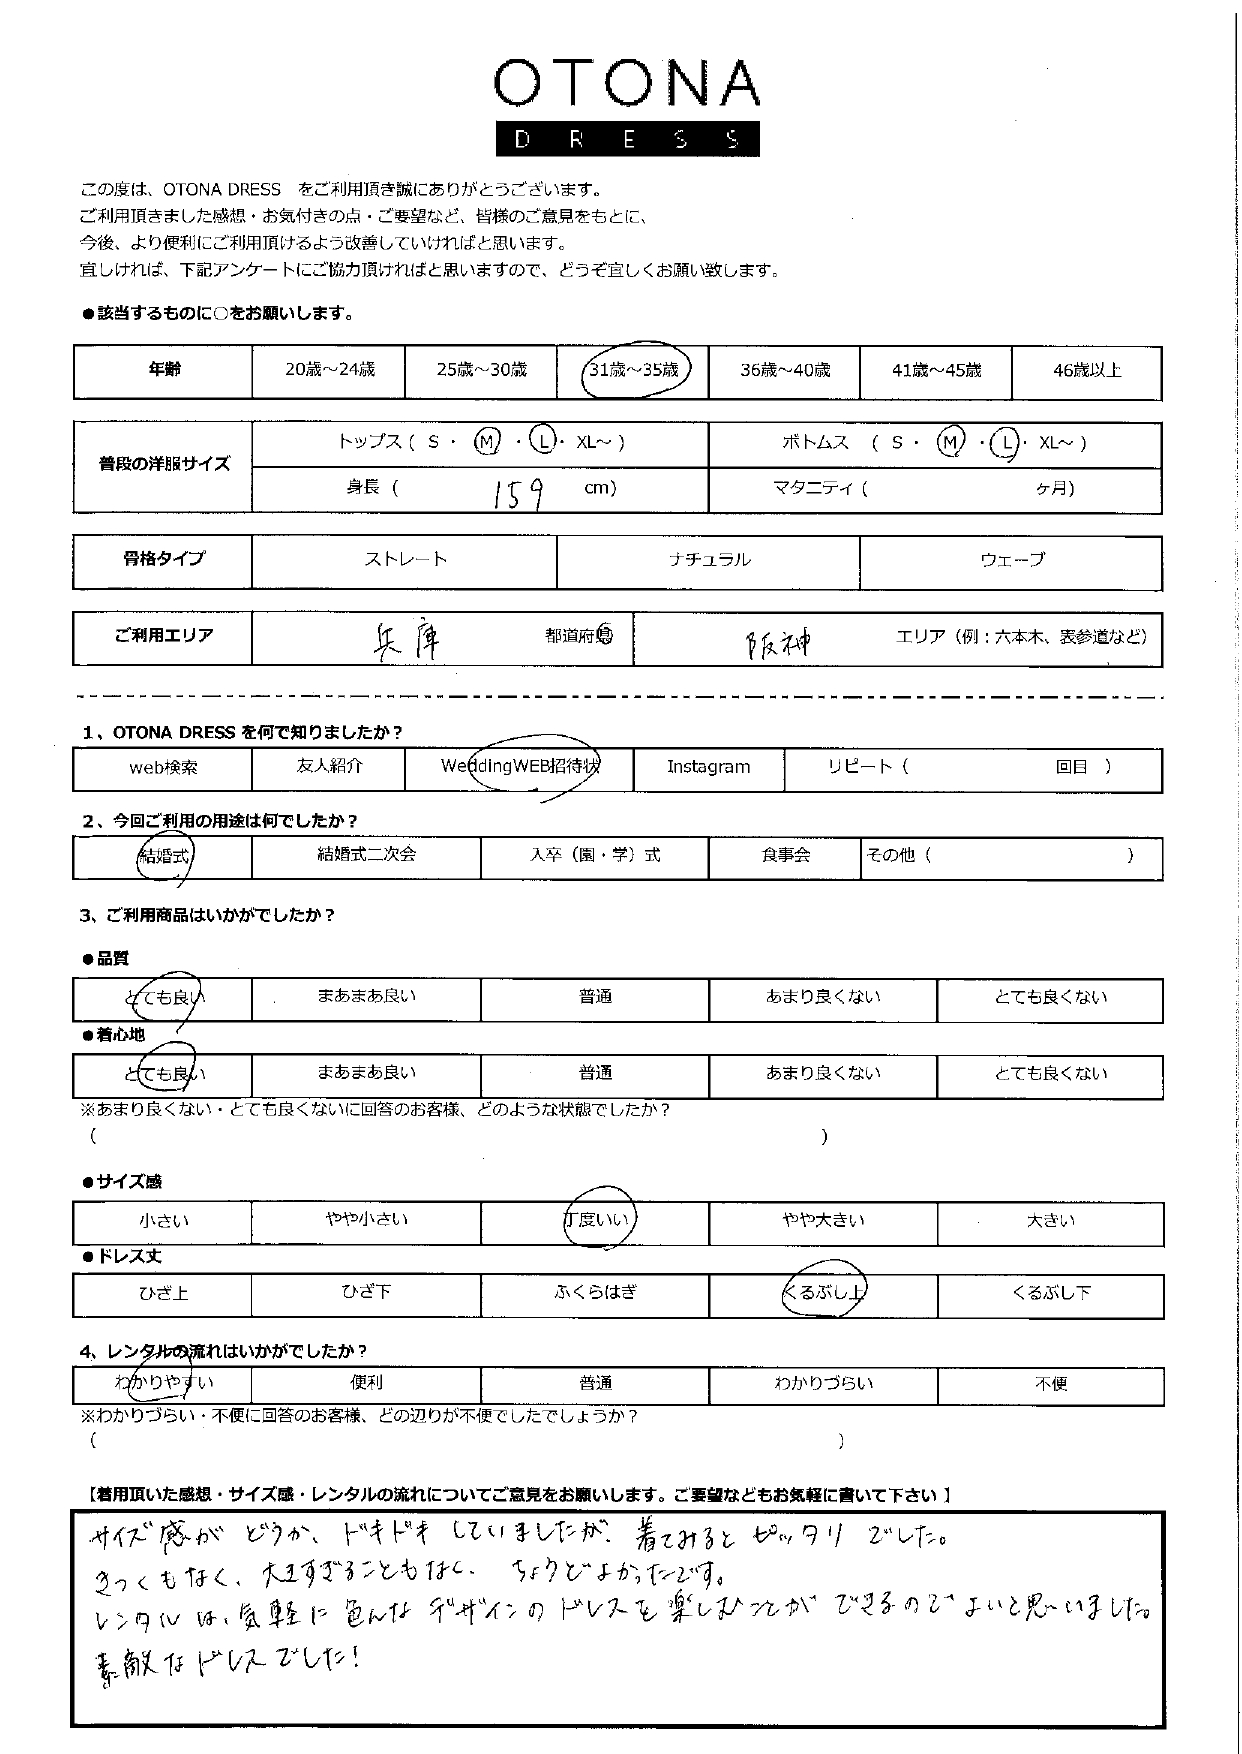 OTONA
DRESS
この度は、OTONA DRESS をご利用頂き誠にありがとうございます。
ご利用頂きました感想・お気付きの点・ご要望など、皆様のご意見をもとに、
今後、より便利にご利用頂けるよう改善していければと思います。
宜しければ、下記アンケートにご協力頂ければと思いますので、どうぞ宜しくお願い致します。
●該当するものに○をお願いします。
年齢 20歳～24歳 25歳～30歳 31歳～35歳 36歳～40歳 41歳～45歳 46歳以上
普段の洋服サイズ トップス ( S ・ M ・ L ・ XL～ ) ボトムス ( S ・ M ・ L ・ XL～ )
身長 ( 159 cm) マタニティ ( ヶ月)
骨格タイプ ストレート ナチュラル ウェーブ
ご利用エリア 兵庫 都道府県 阪神 エリア（例：六本木、表参道など）
1、OTONA DRESS を何で知りましたか？
web検索 友人紹介 WeddingWEB招待状 Instagram リピート ( 回目 )
2、今回ご利用の用途は何でしたか？
結婚式 結婚式二次会 入卒（園・学）式 食事会 その他 ( )
3、ご利用商品はいかがでしたか？
●品質
とても良い まあまあ良い 普通 あまり良くない とても良くない
●着心地
とても良い まあまあ良い 普通 あまり良くない とても良くない
※あまり良くない・とても良くないに回答のお客様、どのような状態でしたか？
( )
●サイズ感
小さい やや小さい 丁度いい やや大きい 大きい
●ドレス丈
ひざ上 ひざ下 ふくらはぎ くるぶし上 くるぶし下
4、レンタルの流れはいかがでしたか？
わかりやすい 便利 普通 わかりづらい 不便
※わかりづらい・不便に回答のお客様、どの辺りが不便でしたでしょうか？
( )
【着用頂いた感想・サイズ感・レンタルの流れについてご意見をお願いします。ご要望などもお気軽に書いて下さい】
サイズ感がどうか、ドキドキしていましたが、着てみるとピッタリでした。
きつくもなく、大きすぎることもなく、ちょうどよかったです。
レンタルは、気軽に色んなデザインのドレスを楽しむことができるのでよいと思いました。
素敵なドレスでした！